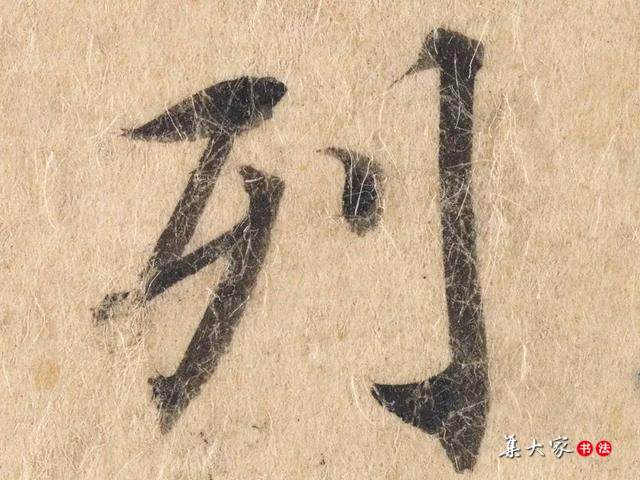 列
集大家书法